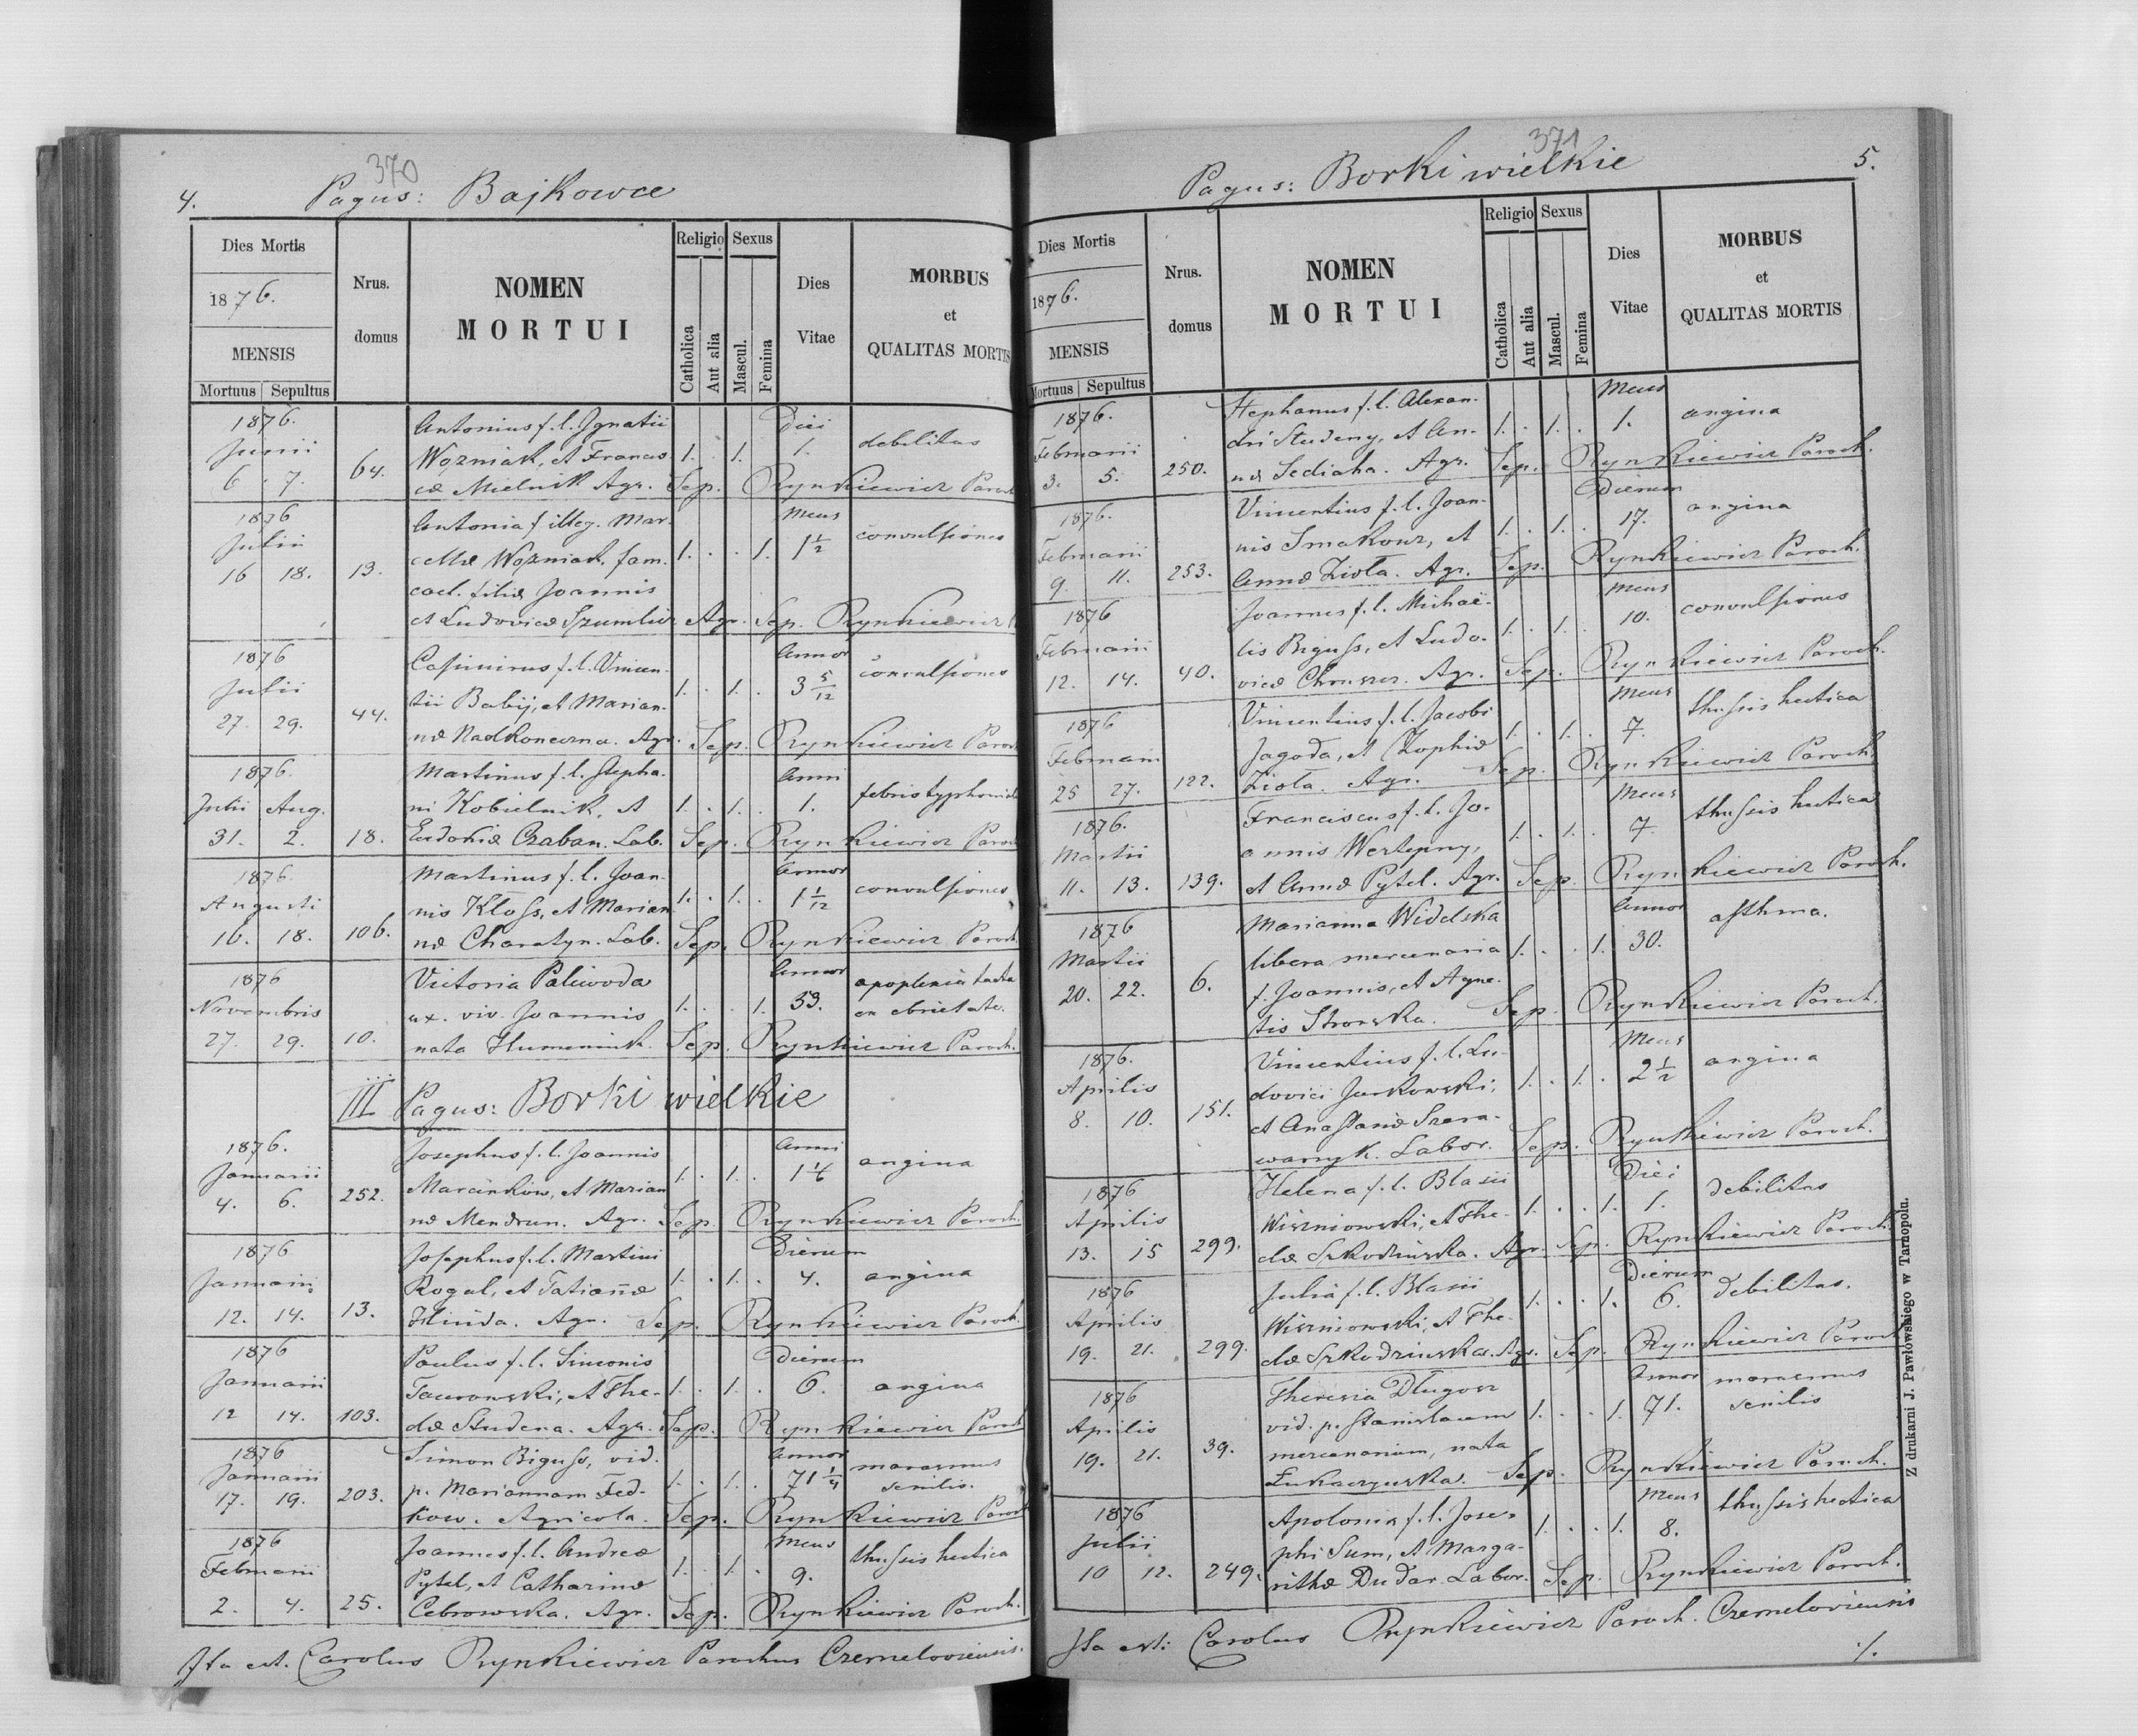 370
4.
Pagus: Bajkowce
Dies Mortis
1876.
MENSIS
Mortuus Sepultus
Nrus.
domus
NOMEN
MORTUI
Religio
Catholica
Aut alia
Sexus
Mascul.
Femina
Dies
Vitae
MORBUS
et
QUALITAS MORTIS
1876. Antonius f. l. Ignatii Diei
Junii Woźniak, et Francis 1. . 1. 1. debilitas
6. 7. 64. cæ Mielnik Agr. Sep. Rynkiewicz Paroch
1876 Antonia f illeg. Mar- Mens
Julii cellæ Woźniak, fam. 1. . . 1. 1 1/2 convulsiones
16 18. 13. cael. filiæ Joannis
et Ludovicæ Szumlicz Agr. Sep. Rynkiewicz
1876 Casimirus f. l. Vincen- Annor
Julii tii Babij, et Marian- 1. . 1. . 3 5/12 convulsiones
27. 29. 44. næ Nadkoneczna. Agr. Sep. Rynkiewicz Paroch
1876. Martinus f. l. Stepha- Anni
Julii Aug. ni Kobielnik, et 1. . 1. . 1. febris typhoid
31. 2. 18. Eudokiæ Czaban. Lab. Sep. Rynkiewicz Paroch
1876. Martinus f. l. Joan- Annor
Augusti nis Kloss, et Marian 1. . 1. . 1 1/12 convulsiones
16. 18. 106. næ Charatyn. Lab. Sep. Rynkiewicz Paroch
1876 Victoria Paliwoda Annor apoplexia tacta
Novembris ux. viv. Joannis 1. . . 1. 53. ex ebrietate.
27. 29. 10. nata Humeniuk. Sep. Rynkiewicz Paroch.
III Pagus: Borki wielkie
1876. Josephus f. l. Joannis Anni
Januarii Marcinkow, et Marian 1. . 1. . 1 1/4 angina
4. 6. 252. næ Mendrun. Agr. Sep. Rynkiewicz Paroch.
1876 Josephus f. l. Martini Dierum
Januarii Rogal, et Tatiannæ 1. . 1. . 4. angina
12. 14. 13. Hlinda. Agr. Sep. Rynkiewicz Paroch.
1876 Paulus f. l. Simeonis Dierum
Januarii Taurowski, et The- 1. . 1. . 6. angina
12 14. 103. clæ Studena. Agr. Sep. Rynkiewicz Paroch
1876 Simon Biguss, vid. Annor marasmus
Januarii p. Mariannam Fed- 1. . 1. . 71 1/4 senilis.
17. 19. 203. kow. Agricola. Sep. Rynkiewicz Paroch
1876 Joannes f. l. Andreæ Mens
Februarii Pytel, et Catharinæ 1. . 1. . 9. thussis hectica
2. 4. 25. Cebrowska. Agr. Sep. Rynkiewicz Paroch.
Ita est. Carolus Rynkiewicz Parochus Czerneloviensis.
371
5.
Pagus: Borki wielkie
Dies Mortis
1876.
MENSIS
Mortuus Sepultus
Nrus.
domus
NOMEN
MORTUI
Religio
Catholica
Aut alia
Sexus
Mascul.
Femina
Dies
Vitae
MORBUS
et
QUALITAS MORTIS
1876. Stephanus f. l. Alexan- Mens
Februarii dri Studeny, et An- 1. . 1. . 1. angina
3. 5. 250. næ Sediaha. Agr. Sep. Rynkiewicz Paroch.
1876. Vincentius f. l. Joan- Dierum
Februarii nis Smakouz, et 1. . 1. . 17. angina
9. 11. 253. Annæ Zioła. Agr. Sep. Rynkiewicz Paroch.
1876 Joannes f. l. Michaë- Mens
Februarii lis Biguss, et Ludo- 1. . 1. . 10. convulsiones
12. 14. 40. vicæ Chruszcz. Agr. Sep. Rynkiewicz Paroch.
1876 Vincentius f. l. Jacobi Mens
Februarii Jagoda, et Zophiæ 1. . 1. . 7. thussis hectica
25 27. 122. Ziola. Agr. Sep. Rynkiewicz Paroch.
1876. Franciscus f. l. Jo- Mens
Martii annis Wertepny, 1. . 1. . 7. thussis hectica
11. 13. 139. et Annæ Pytel. Agr. Sep. Rynkiewicz Paroch.
1876 Marianna Widelska Annor asthma.
Martii libera mercenaria 1. . . 1. 30.
20. 22. 6. f. Joannis, et Agne-
tis Skorska. Sep. Rynkiewicz Paroch.
1876. Vincentius f. l. Lu- Mens
Aprilis dovici Jurkowski, 1. . 1. . 2 1/2 angina
8. 10. 151. et Anastasiæ Szera-
warnyk. Labor. Sep. Rynkiewicz Paroch.
1876 Helena f. l. Blasii Diei
Aprilis Wiszniowski, et The- 1. . . 1. 1. debilitas
13. 15 299. clæ Szkodzinska. Agr. Sep. Rynkiewicz Paroch
1876 Julia f. l. Blasii Dierum
Aprilis Wiszniowski, et The- 1. . . 1. 6. debilitas.
19. 21. 299. clæ Szkodzinska. Agr. Sep. Rynkiewicz Paroch
1876 Theresia Długosz Annor marasmus
Aprilis vid. p. Stanislaum 1. . . 1. 71. senilis
19. 21. 39. mercenarium, nata
Łukaszyńska. Sep. Rynkiewicz Paroch.
1876 Apolonia f. l. Jose- Mens
Julii phi Sum, et Marga- 1. . . 1. 8. thussis hectica
10 12. 249. rithæ Dudar. Labor. Sep. Rynkiewicz Paroch.
Ita est: Carolus Rynkiewicz Paroch. Czerneloviensis
./.
Z drukarni J. Pawłowskiego w Tarnopolu.